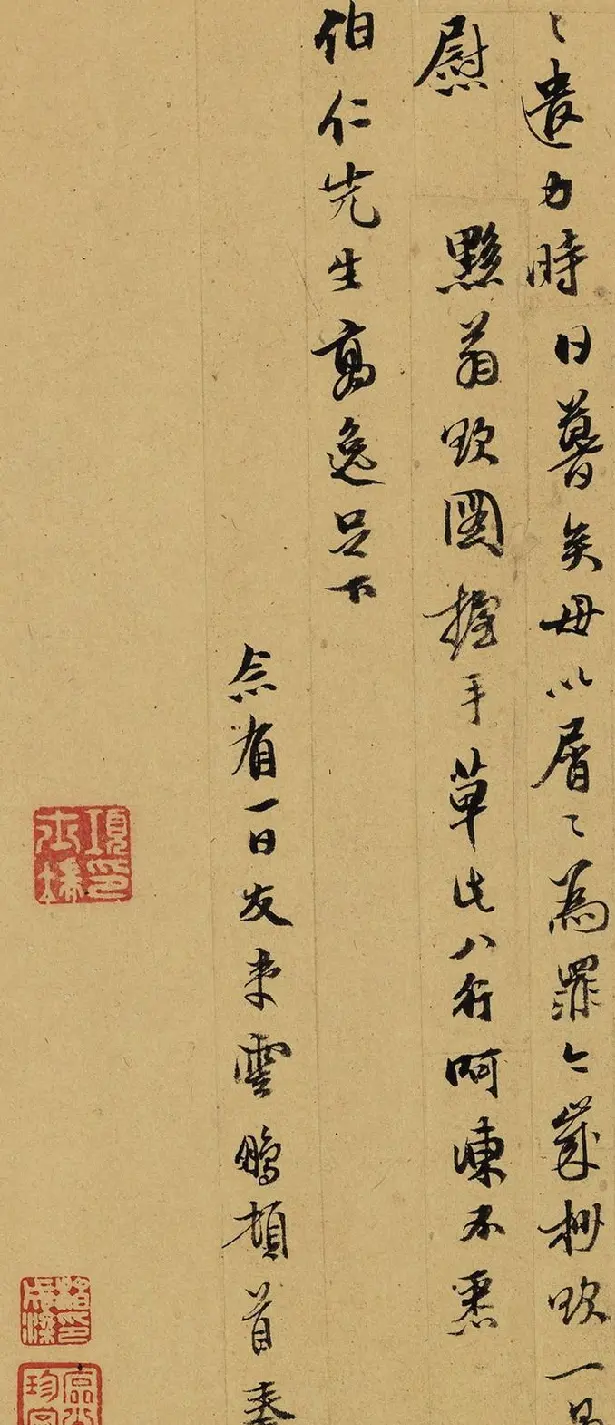 〻遣力時日暮矣毋以屑〻為罪今歲杪欲一
慰 黟翁欲圖握手草此八行呵凍不悉
伯仁先生高逸足下
念有一日友末雲鵬頓首奉